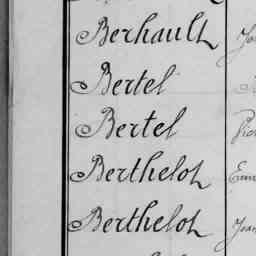 Berhault
Bertel
Bertel
Berthelot
Berthelot